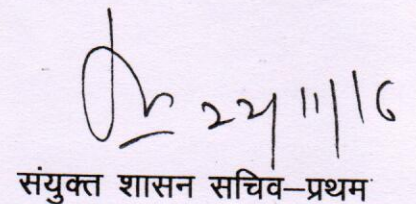 22/11/16
संयुक्त शासन सचिव–प्रथम